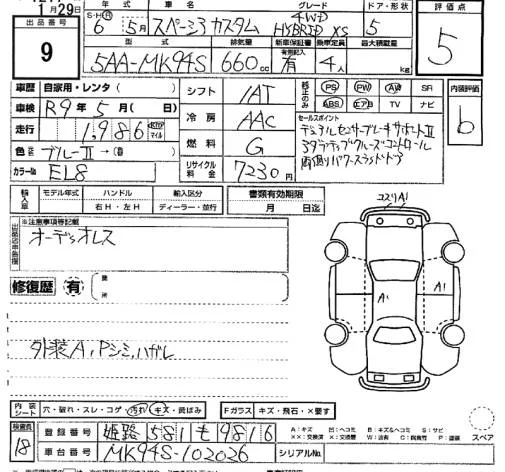 1月29日
出品番号 9
年式 車名 グレード ドア・形状 評価点
S・H・R 6年 5月 スペーシア カスタム 4WD HYBRID XS 5 5
型式 排気量 新車保証書 乗車定員 最大積載量
5AA-MK94S 660cc 有 4人 kg
車歴 自家用・レンタ( )
車検 R9年5月( 日)
走行 1,986 km マイル
色 ブルーⅡ→( )
カラーNo. EL8
シフト IAT
冷房 AAC
燃料 G
リサイクル料金 7230円
純正のみ PS PW AW SR
ABS エアB TV ナビ
内装評価 b
セールスポイント
デュアルセンサーブレーキサポートⅡ
アダプティブクルーズコントロール
両側パワースライドドア
輸入車 モデル年式 ハンドル 輸入区分
年 右H・左H ディーラー・並行
書類有効期限
月 日迄
※注意事項等記載
オーディオレス
修復歴 有 箇所
外装A,Pシミ,ハガレ
コスリA1
A1
A1
内装シート 穴・破れ・スレ・コゲ・汚れ・キズ・黄ばみ
Fガラス キズ・飛石・×要す
検査員 18
登録番号 姫路 581 も 9816
車台番号 MK94S-102026
シリアルNo.
A:キズ U:ヘコミ B:キズ&ヘコミ S:サビ
XX:交換済 X:交換要 W:波有 C:腐蝕有 P:塗装
スペア